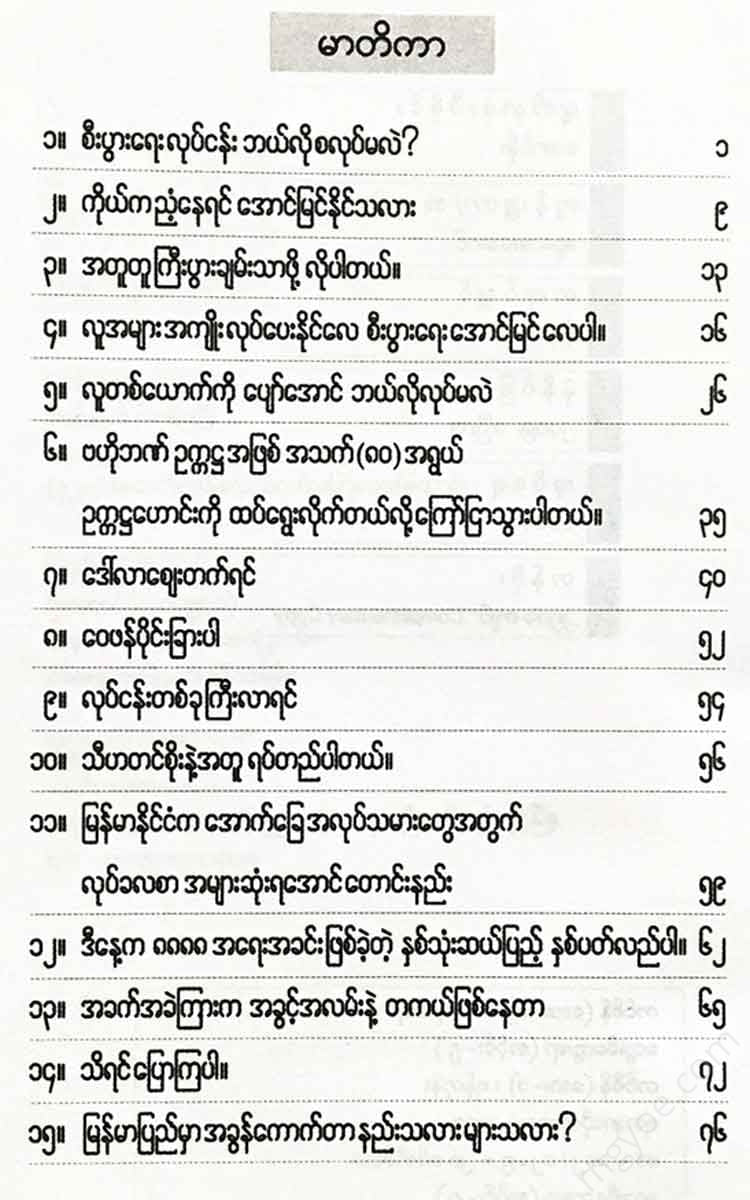 မာတိကာ
၁။ စီးပွားရေးလုပ်ငန်း ဘယ်လိုစလုပ်မလဲ? ၁
၂။ ကိုယ်ကညံ့နေရင် အောင်မြင်နိုင်သလား ၉
၃။ အတူတူကြီးပွားချမ်းသာဖို့ လိုပါတယ်။ ၁၃
၄။ လူအများအကျိုးလုပ်ပေးနိုင်လေ စီးပွားရေးအောင်မြင်လေပါ။ ၁၆
၅။ လူတစ်ယောက်ကို ပျော်အောင် ဘယ်လိုလုပ်မလဲ ၂၆
၆။ ဗဟိုဘဏ် ဥက္ကဋ္ဌအဖြစ် အသက်(၈၀)အရွယ်
ဥက္ကဋ္ဌဟောင်းကို ထပ်ရွေးလိုက်တယ်လို့ကြော်ငြာသွားပါတယ်။ ၃၅
၇။ ဒေါ်လာဈေးတက်ရင် ၄၀
၈။ ဝေဖန်ပိုင်းခြားပါ ၅၂
၉။ လုပ်ငန်းတစ်ခုကြီးလာရင် ၅၄
၁၀။ သီဟတင်စိုးနဲ့အတူ ရပ်တည်ပါတယ်။ ၅၆
၁၁။ မြန်မာနိုင်ငံက အောက်ခြေအလုပ်သမားတွေအတွက်
လုပ်ခလစာ အများဆုံးရအောင်တောင်းနည်း ၅၉
၁၂။ ဒီနေ့က ၈၈၈၈ အရေးအခင်းဖြစ်ခဲ့တဲ့ နှစ်သုံးဆယ်ပြည့် နှစ်ပတ်လည်ပါ။ ၆၂
၁၃။ အခက်အခဲကြားက အခွင့်အလမ်းနဲ့ တကယ်ဖြစ်နေတာ ၆၅
၁၄။ သိရင်ပြောကြပါ။ ၇၂
၁၅။ မြန်မာပြည်မှာအခွန်ကောက်တာနည်းသလားများသလား? ၇၆